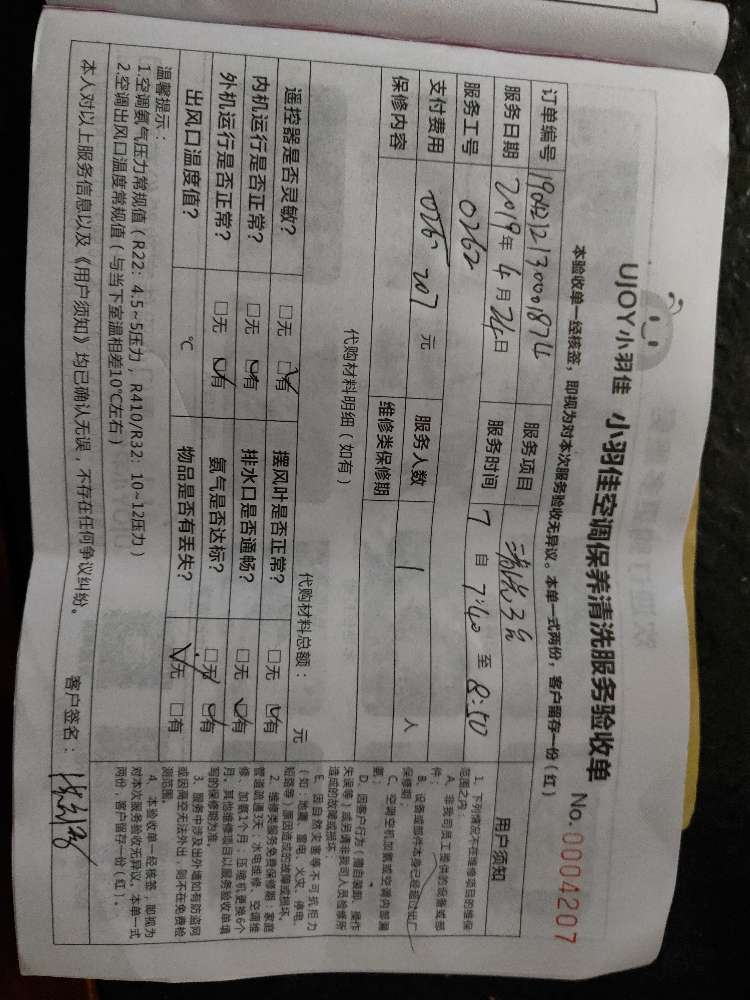 UJOY小羽佳 小羽佳空调保养清洗服务验收单 No.0004207
本验收单一经核签，即视为对本次服务验收无异议。本单一式两份，客户留存一份（红）
订单编号 服务项目 清洗3台
服务日期 2019年4月24日 服务时间 7 自 7:40 至 8:50
服务工号 0262
支付费用 207 元 服务人数 1 人
保修内容 维修类保修期
代购材料明细（如有） 代购材料总额： 元
遥控器是否灵敏？ □无 □有 摆风叶是否正常？ □无 □有
内机运行是否正常？ □无 □有 排水口是否通畅？ □无 □有
外机运行是否正常？ □无 □有 氨气是否达标？ □无 □有
出风口温度值？ ℃ 物品是否有丢失？ □无 □有
温馨提示：
1.空调氨气压力常规值（R22：4.5~5压力，R410/R32：10~12压力）
2.空调出风口温度常规值（与当下室温相差10℃左右）
本人对以上服务信息以及《用户须知》均已确认无误，不存在任何争议纠纷。 客户签名：
用户须知
1. 下列情况不在维修项目的维保
范围之内：
A、非我司员工提供的设备或部
件；
B、设备或部件本身已经超过出厂
保修期；
C、空调空机加氨或空调内部漏
氨；
D、因客户行为（擅自装卸、操作
失误等）或另请非我司人员检修所
造成的故障或损坏；
E、因自然灾害等不可抗拒力
（如：地震、雷电、火灾、停电、
短路等）原因造成的故障或损坏。
2、维修类服务免费保修期：家庭
管道疏通3天；水电维修、空调维
修、加氨1个月；压缩机更换6个
月，其他维修项目以服务验收单填
写的保修期为准。
3、服务中涉及出外墙如有防盗网
或因高空无法外出，则不在免费检
测范围。
4、本验收单一经核签，即视为
对本次服务验收无异议。本单一式
两份，客户留存一份（红）。